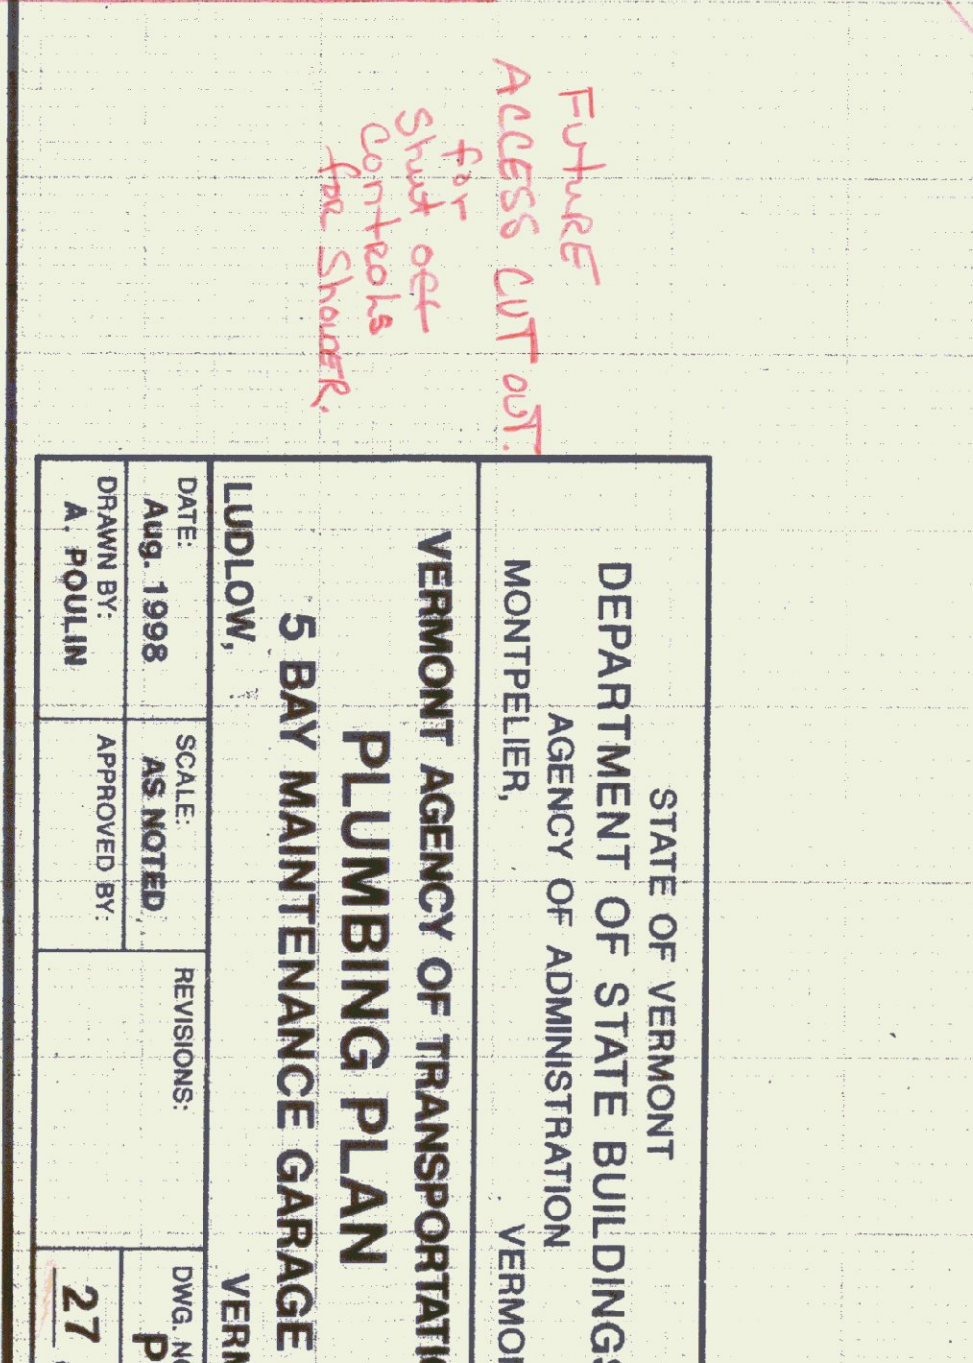 FutuRE
ACCESS CUT OUT.
for
Shut off
ContRols
foR ShowER.
STATE OF VERMONT
DEPARTMENT OF STATE BUILDINGS
AGENCY OF ADMINISTRATION
MONTPELIER, VERMO
VERMONT AGENCY OF TRANSPORTATIO
PLUMBING PLAN
5 BAY MAINTENANCE GARAGE
LUDLOW, VERM
DATE:
Aug. 1998
SCALE:
AS NOTED
REVISIONS:
DWG. NO
P
DRAWN BY:
A. POULIN
APPROVED BY:
27